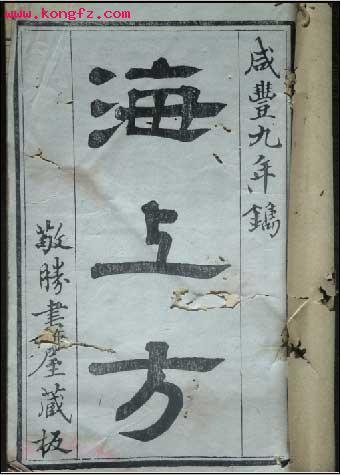 www.kongfz.com
咸豐九年鐫
海上方
敬勝書屋藏板